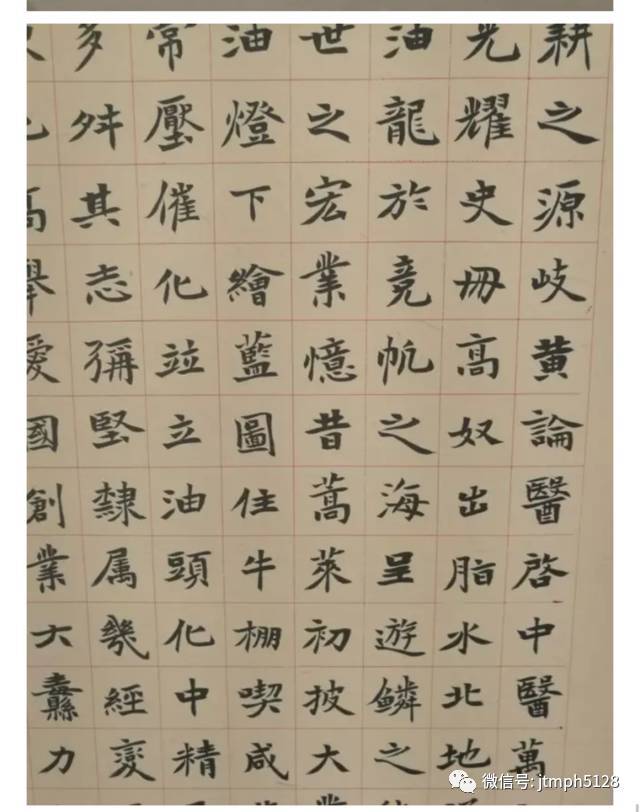 耕之源岐黄論醫啓中醫萬
光耀史冊高奴出脂水北地
油龍於竟帆之海呈遊鱗之
世之宏業憶昔蒿萊初披大
油燈下繪藍圖住牛棚喫咸
常壓催化竝立油頭化中精
多舛其志彌堅隸属幾經變
高舉愛國創業大纛力
微信号: jtmph5128